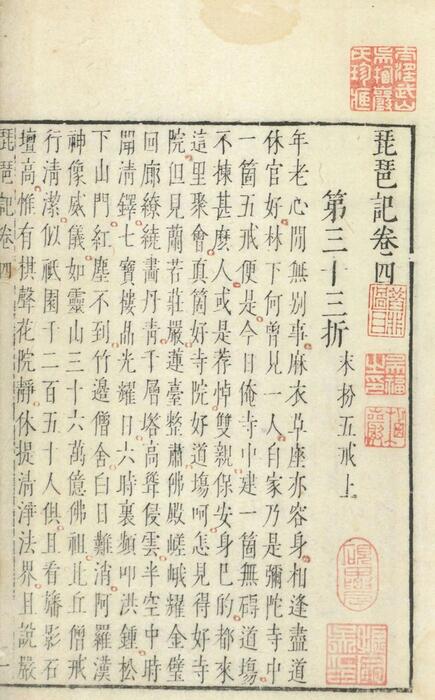 琵琶記卷四
第三十三折
末扮五戒上
年老心閒無別事麻衣草座亦容身相逢盡道
休官好林下何曾見一人自家乃是彌陀寺中
一箇五戒便是今日俺寺中建一箇無碍道塲
不揀甚麽人或是荐悼雙親保安身巳的都來
這里聚會真箇好寺院好道塲呵怎見得好寺
院但見蘭若莊嚴蓮臺整肅佛殿嵯峨耀金璧
回廊繚繞畵丹靑千層塔高聳侵雲半空中時
聞清鐸七寶樓晶光耀日六時裏頻叩洪鍾松
下山門紅塵不到竹邊僧舍白日難消阿羅漢
神像威儀如靈山三十六萬億佛祖比丘僧戒
行清潔似祇園千二百五十人俱且看旛影石
壇高惟有棋聲花院靜休提清淨法界且說嚴
琵琶記卷四
一